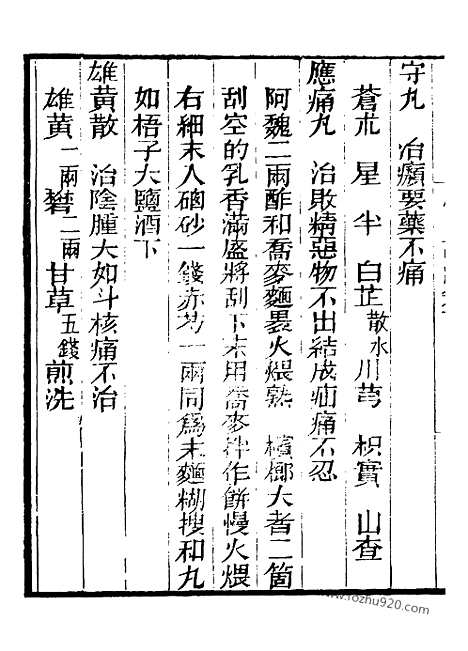 守丸　治㿗要藥不痛
蒼朮　星　半　白芷散水　川芎　枳實　山查
應痛丸　治敗精惡物不出結成疝痛不忍
阿魏二兩酢和喬麥麵裹火煨熟　檳榔大者二箇
刮空的乳香滿盛將刮下末用喬麥拌作餅慢火煨
右細末入硇砂一錢赤芍一兩同爲末麵糊搜和丸
如梧子大鹽酒下
雄黃散　治陰腫大如斗核痛不治
雄黃一兩礬二兩甘草五錢煎洗
www.fozhu920.com